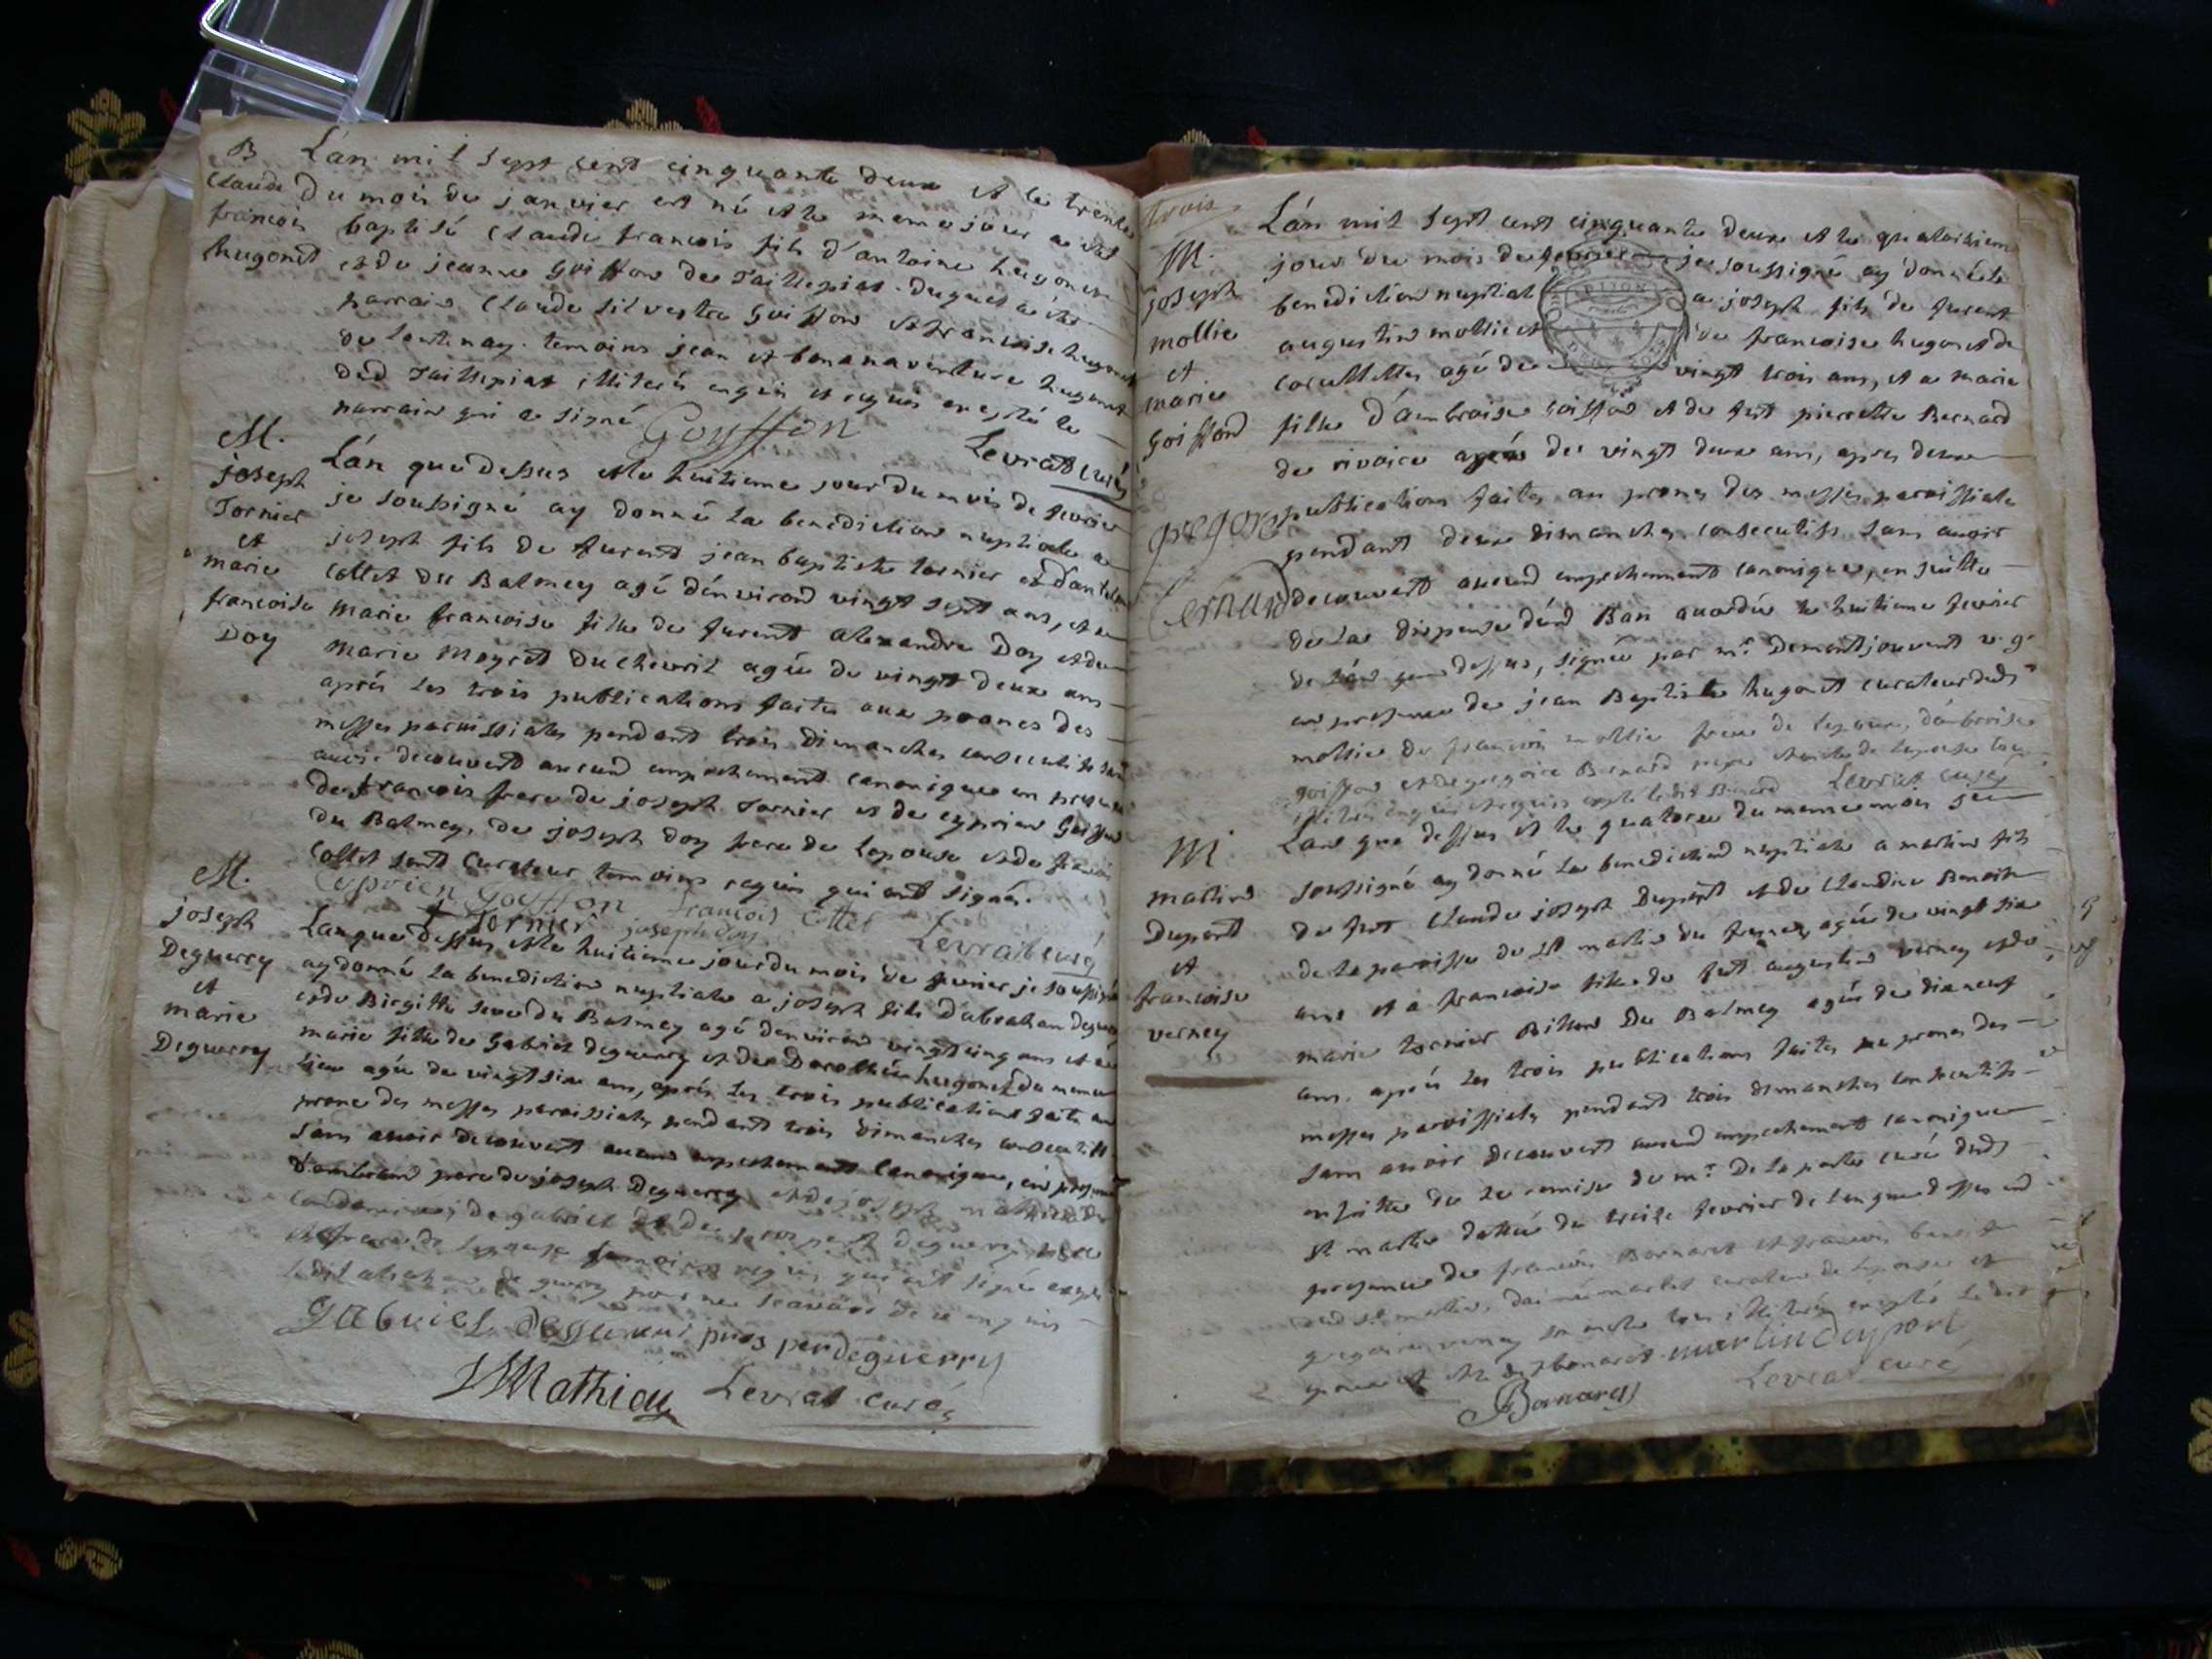 B
Claude
francois
hugonet
L'an mil sept cent cinquante deux et le trente
du mois de janvier est né et le meme jour a été
baptisé Claude francois fils d'antoine hugonet
et de jeanne Goiffon de Taillepiat duquel a été
parrain Claude silvestre Goiffon et francoise hugonet
de lentenay. temoins jean et bonnaventure hugonet
dud Taillepiat illiterés enquis et requis excepté le
parrain qui a signé Goyffon
Levrat curé
M.
joseph
Tornier
et
marie
francoise
Doy
L'an que dessus et le huitieme jour du mois de fevrier
je soussigné ay donné la benediction nuptiale a
joseph fils de furent jean baptiste tornier et
Collet du Balmey agé d'environ vingt sept ans, et a
Marie francoise fille de furent alexandre Doy et de
Marie Mayret du chevril agée de vingt deux ans
aprés les trois publications faites aux prones des
messes parroissiales pendant trois dimanches consecutifs sans
avoir decouvert aucund empechement canonique en presence
de francois frere de joseph Tornier et de cyprien Goiffon
du Balmey, de joseph doy frere de lepouse et de francois
Collet sont Curateur temoins requis qui ont signés.
Cyprien Goiffon francois Collet
J Tornier joseph doy Levrat curé
M.
joseph
Deguerry
et
marie
Deguerry
L'an que dessus et le huitieme jour du mois de fevrier je soussigné
ay donné la benediction nuptiale a joseph fils d'abrahan Deguerry
et de Birgitte seve du Balmey agé denviron vingt cinq ans et a
marie fille de Gabriel deguerry et de Dorothée hugonet du meme
lieu agée de vingt six ans, aprés les trois publications faites au
prone des messes paroissiales pendant trois dimanches consecutifs
sans avoir decouvert aucun empechement Canonique, en presence
d'ambrand pere de joseph Deguerry et de joseph mathieu de
de gabriel et de prosper deguerry pere
et frere de lepouse temoins requis qui ont signé excepté
ledit abrahan de guerry pour ne scavoir de ce enquis
gabriel deguerry prosper deguerry
JMathieu Levrat curé
trois
M.
joseph
mollie
et
marie
Goiffond
L'an mil sept cent cinquante deux et le quatorzieme
jour du mois de fevrier je soussigné ay donné la
benediction nuptial a joseph fils de furent
augustin mollie et de francoise hugonet de
agé de vingt trois ans, et a marie
fille d'ambroise goiffond et de fut pierrette Bernard
de rivoire agée de vingt deux ans, apres deux
publications faites au prones des messes paroissiale
gregore
pendant deux dimanches consecutifs sans avoir
bernard
decouvert aucund empechement canonique, en suitte
de la dispense d'und Ban accordée le huitieme fevrier
de l'an que dessus, signée par mr. Demontjouvent v. g.
en presence de jean Baptiste hugonet curateur dud
mollie de francois mollie frere de lepoux, d'ambroise
goiffond et de gregoire Bernard pere et oncle de lepouse tous
illiterés enquis et requis excepté ledit Bernard Levrat curé
M
martin
Dupont
et
francoise
verney
L'an que dessus et le quatorze du meme mois je
soussigné ay donné la benediction nuptiale a martin fils
de fut Claude joseph Dupont et de Claudine Benoit
de la paroisse de st martin du fresne, agée de vingt six
ans et a francoise fille de fut augustin verney et de
marie tornier Billon Du Balmey agée de dix neuf
ans. aprés les trois publications faites au prones des
messes paroissiales pendant trois dimanches consecutifs
sans avoir decouvert aucund empechement canonique
en suitte de la remise de mr. De la porte curé dud
st martin dattée du treize fevrier de l'an que dessus en
presence de francois Bornarel et francois benoit
dud st martin, curateur de lepouse et
gregoire verney son oncle tous illiterés excepté ledit
martin dupont
Bornarel Levrat curé